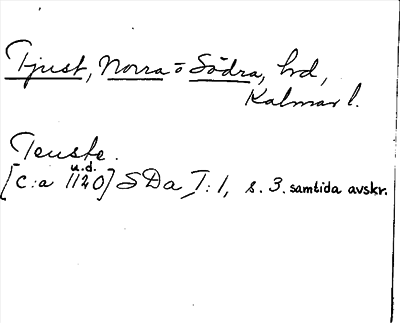 Tjust, Norra o Södra, hrd,
Kalmar l.
Teuste.
u.d.
[c:a 1120] SDa I:1, s. 3. samtida avskr.